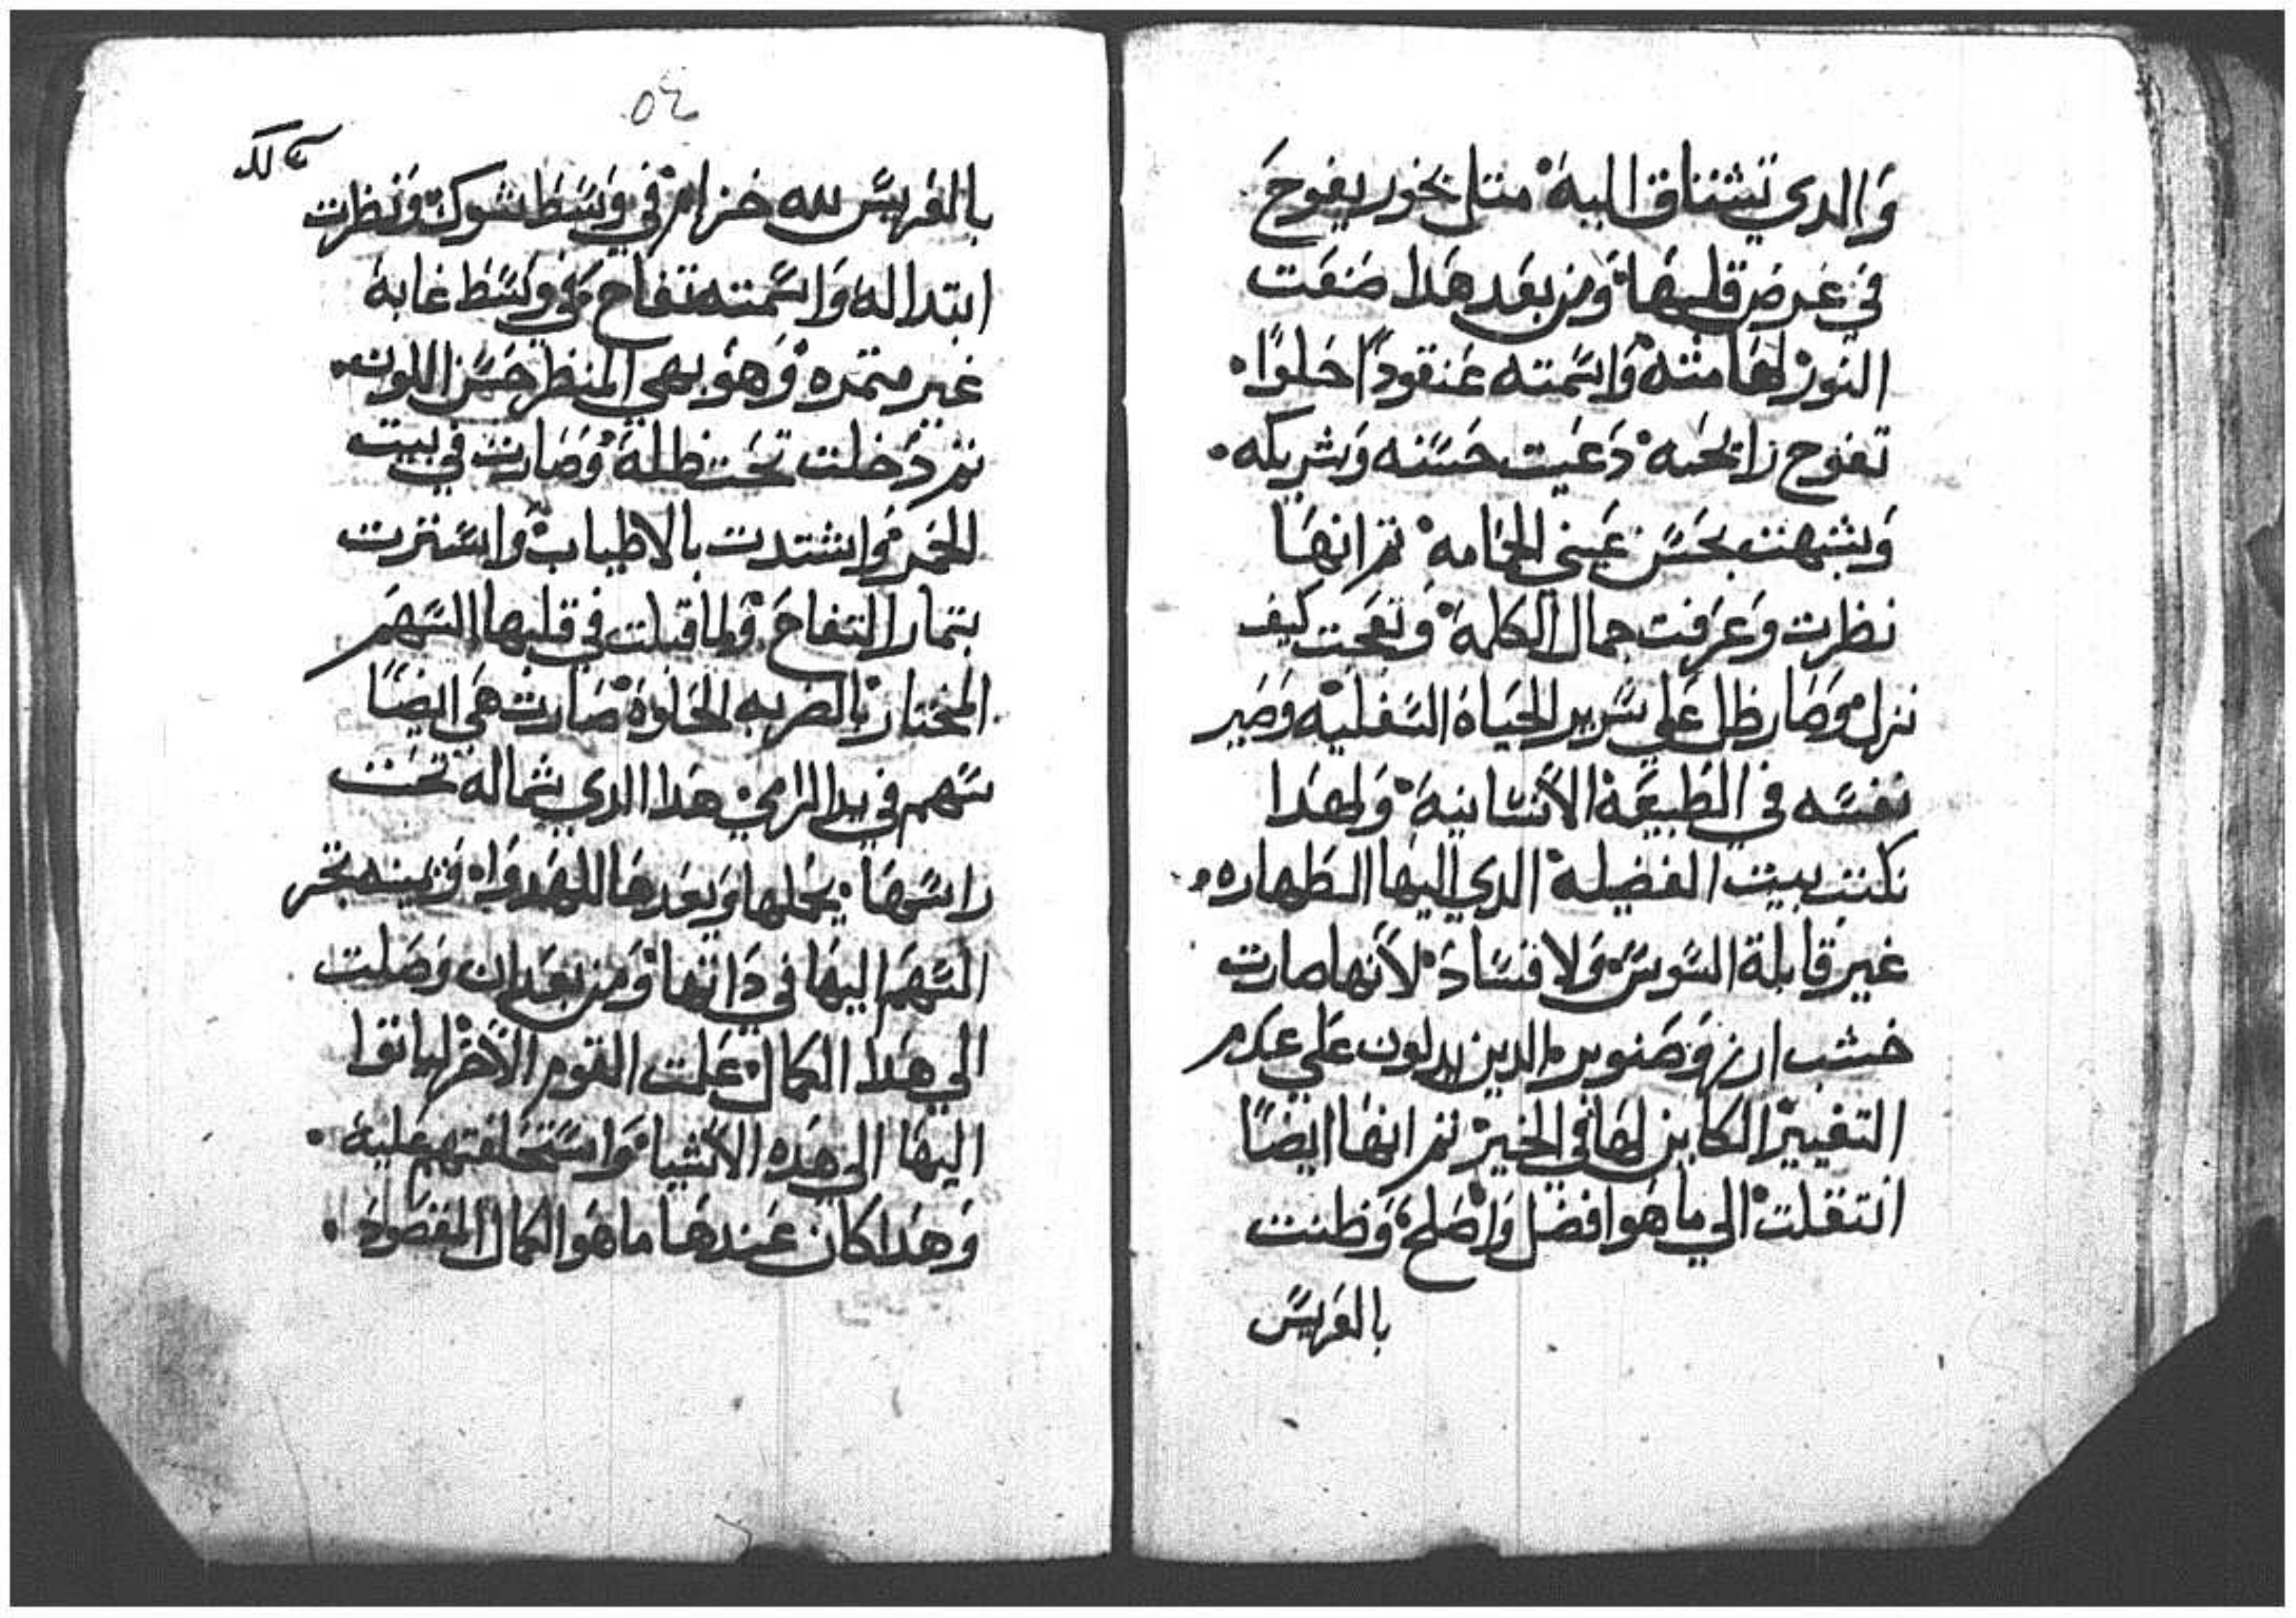 والدي تشتاق اليه متل بخور يفوح
في عرض قلبها ومن بعد هدا صنعت
النور لها منه واسمته عنقودًا حلوًا
تفوح رايحته دعيت حسنه وشريكه
وشبهت بحسن عيني الحمامه تم انها
نظرت وعرفت جمال الكلمة وتعجبت كيف
نزل وصار ظل علي سرير الحياة السفليه وصير
نفسه في الطبيعة الانسانية ولهدا
نكتت بيت الفضيله الدي اليها الطهاره
غير قابلة السوس ولا فساد لانها صارت
خشب ارز وصنوبر الدين يدلون علي عدم
التغيير الكاين لها في الخير تم انها ايضًا
انتقلت الي ما هو افضل واصلح وظنت
بالفريس
٥٤
بالفريس لله خزام في وسط شوك ونظرت
ابتدا له واسمته تفاح في وسط غابة
غير متمره وهو بهي المنظر حسن اللون
تم دخلت تحت ظله وصارت في بيت
الخمر واشتدت بالاطياب واستترت
بتمار التفاح ولما قبلت في قلبها السهم
المختار بالضربه الحلوة صارت هي ايضًا
سهم في يد الرامي هدا الدي بشماله تحت
راسها يحملها ويعدها للهدو ويمينه تجر
السهم اليها في داتها ومن بعد ان وصلت
الي هدا الكمال علمت القوم الاخر لياتوا
اليها الي هده الاشيا واستحلفتهم عليه
وهدا كان عندها ما هو الكمال المقصود